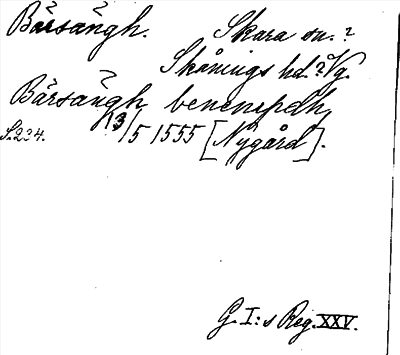 Bärsängh. Skara sn. ?
Skånings hd. ? Vg.
Bärsängh, benempdh,
S. 224. 13/5 1555 [Nygård].
G. I:s Reg. XXV.